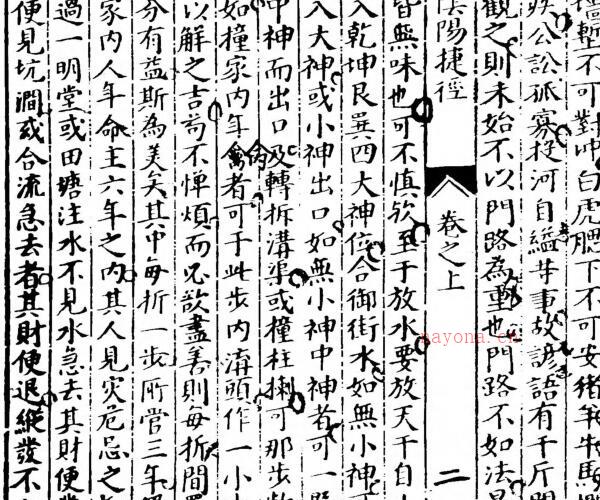 壇塹不可對冲白虎腮下不可安豬牢牛馬
疾公訟孤寡投河自縊等事故諺語有千斤
觀之則未始不以門路為重也門路不如法
陰陽捷徑
卷之上
二
皆無味也可不慎欤至于放水要放天干自
入乾坤艮巽四大神位合御街水如無小神
入大神或小神出口如無小神中神者可一
中神而出口及轉折溝渠或撞柱
可那步
如撞家內年禽者可于此步內溝頭作一小
以解之吉苟不憚煩而必欲盡善則每折間
分有益斯為美矣其中每折一步所管三年
家內人年命主六年之內其人見灾危忌之
過一明堂或田塘注水不見水急去其財便
便見坑澗或合流急去者其財便退縱發不
nayona.cn